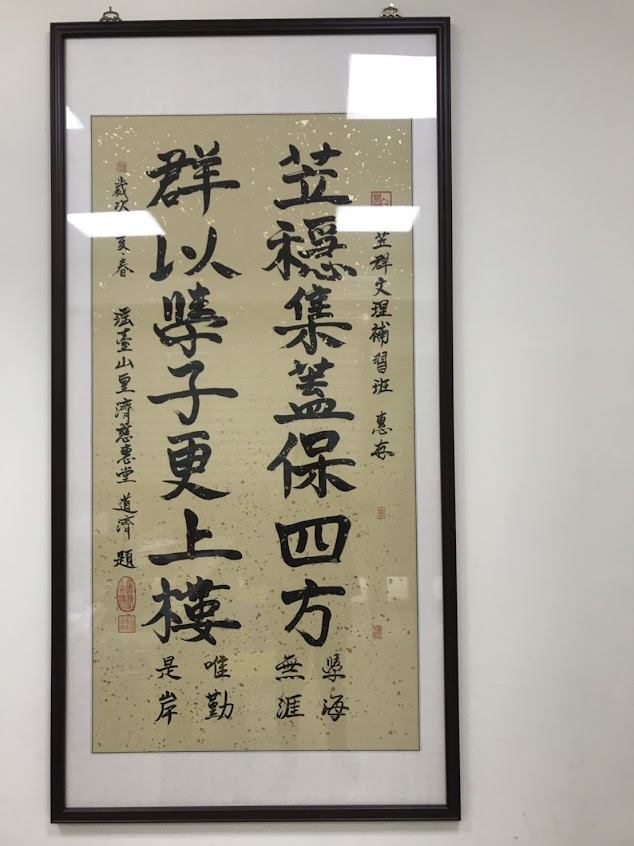 苙群文理補習班 惠存
苙穩集蓋保四方
學海
無涯
群以學子更上樓
唯勤
是岸
歲次亥春 瑤臺山皇濟慈惠堂 道濟 題